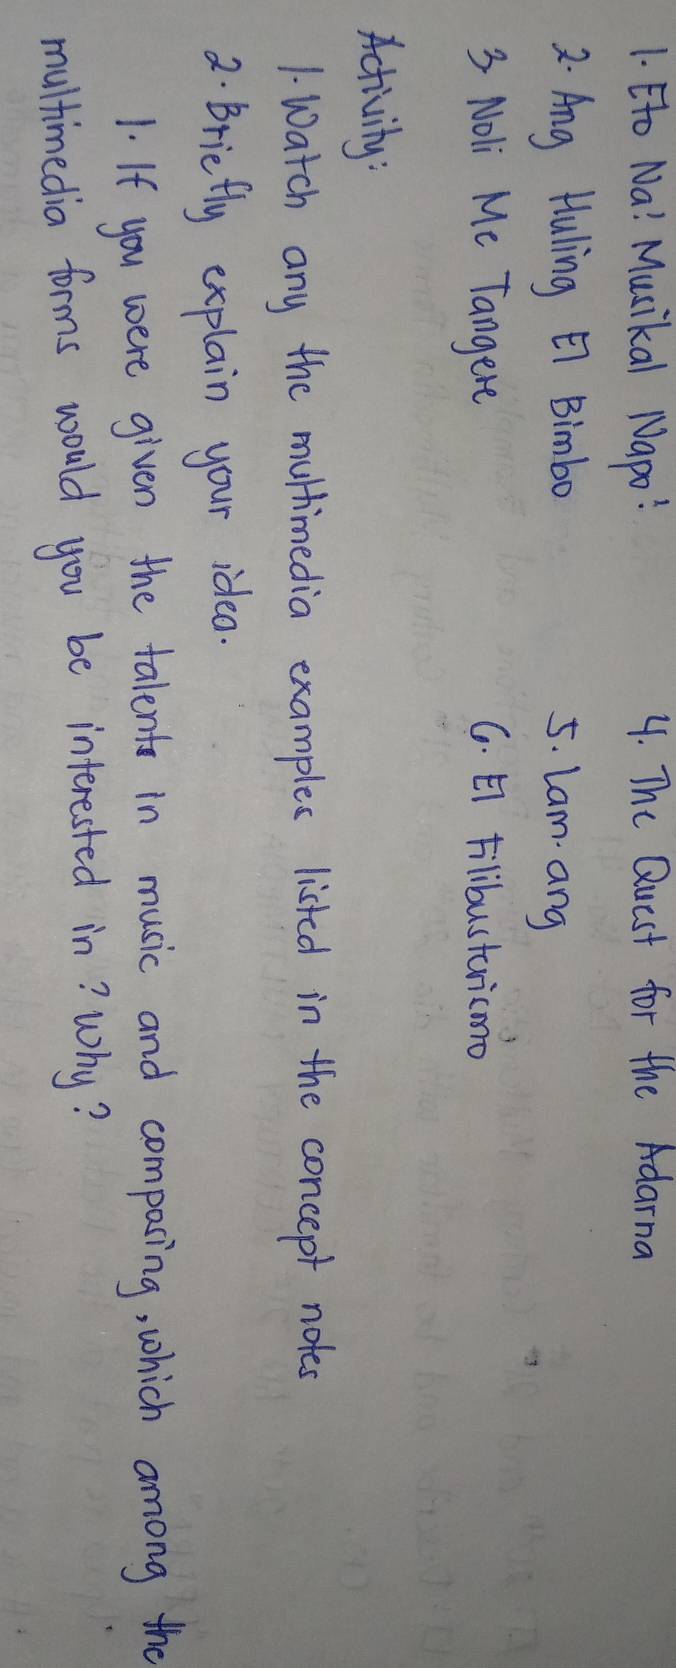 1. Eto Na! Musikal Napo! 4. The Quest for the Adarna
2. Ang Huling El Bimbo 5. Lam-ang
3 Noli Me Tangere 6. El Filibusterismo
Activity:
1. Watch any the multimedia examples listed in the concept notes
2. Briefly explain your idea.
1. If you were given the talents in music and comparing, which among the
multimedia forms would you be interested in? Why?